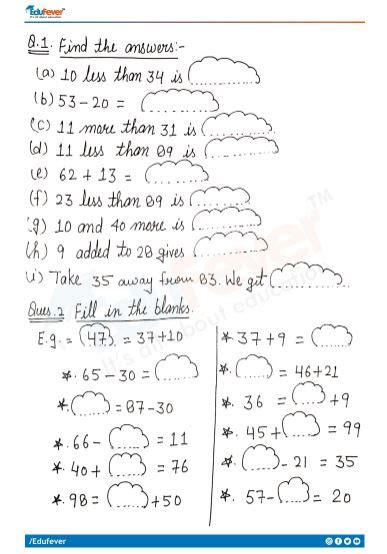 EduFever
It's all about education
Q.1. Find the answers:-
(a) 10 less than 34 is
(b) 53 - 20 =
(c) 11 more than 31 is
(d) 11 less than 89 is
(e) 62 + 13 =
(f) 23 less than 89 is
(g) 10 and 40 more is
(h) 9 added to 28 gives
(i) Take 35 away from 83. We get
Ques.2 Fill in the blanks.
E.g. = 47 = 37+10
*. 65 - 30 =
*. = 87-30
*. 66 - = 11
*. 40 + = 76
*. 98 = + 50
*. 37+9 =
*. = 46+21
*. 36 = +9
*. 45+ = 99
*. - 21 = 35
*. 57- = 20
EduFever
TM
It's all about education
/Edufever